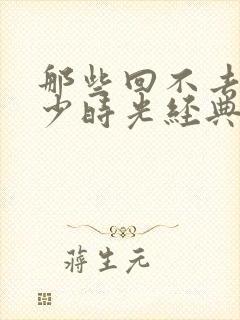 那些回不去
少時光經典
蔣生元